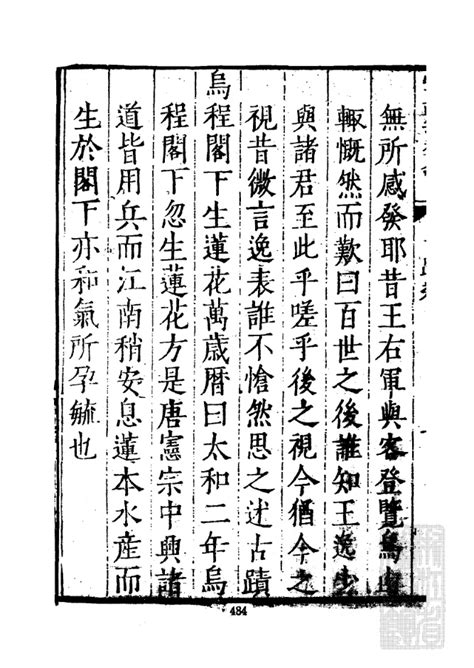 無所感發耶昔王右軍與客登覽烏程
輙慨然而歎曰百世之後誰知王逸少
與諸君至此乎嗟乎後之視今猶今之
視昔微言逸表誰不愴然思之述古蹟
烏程閣下生蓮花萬歲曆曰太和二年烏
程閣下忽生蓮花方是唐憲宗中興諸
道皆用兵而江南稍安息蓮本水産而
生於閣下亦和氣所孕毓也
484